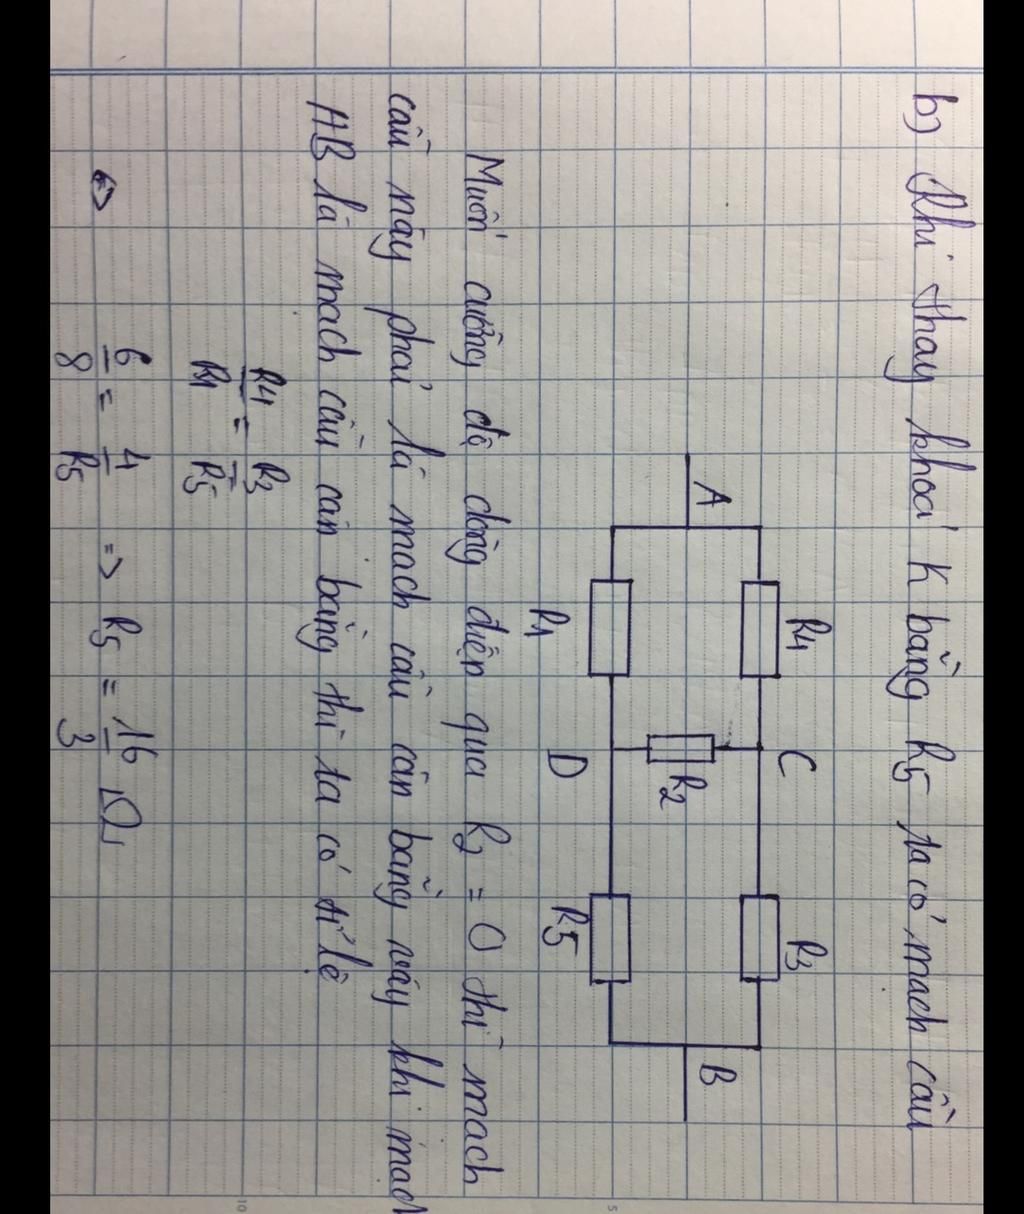 b) Khi thay khoá K bằng R5 ta có mạch cầu
A
R4
C
R3
B
R2
R1
D
R5
Muốn cường độ dòng điện qua R2 = 0 thì mạch
cầu này phải là mạch cầu cân bằng vậy khi mạch
AB là mạch cầu cân bằng thì ta có tỉ lệ
R4/R1 = R3/R5
⇔ 6/8 = 4/R5 ⇒ R5 = 16/3 Ω
5
10